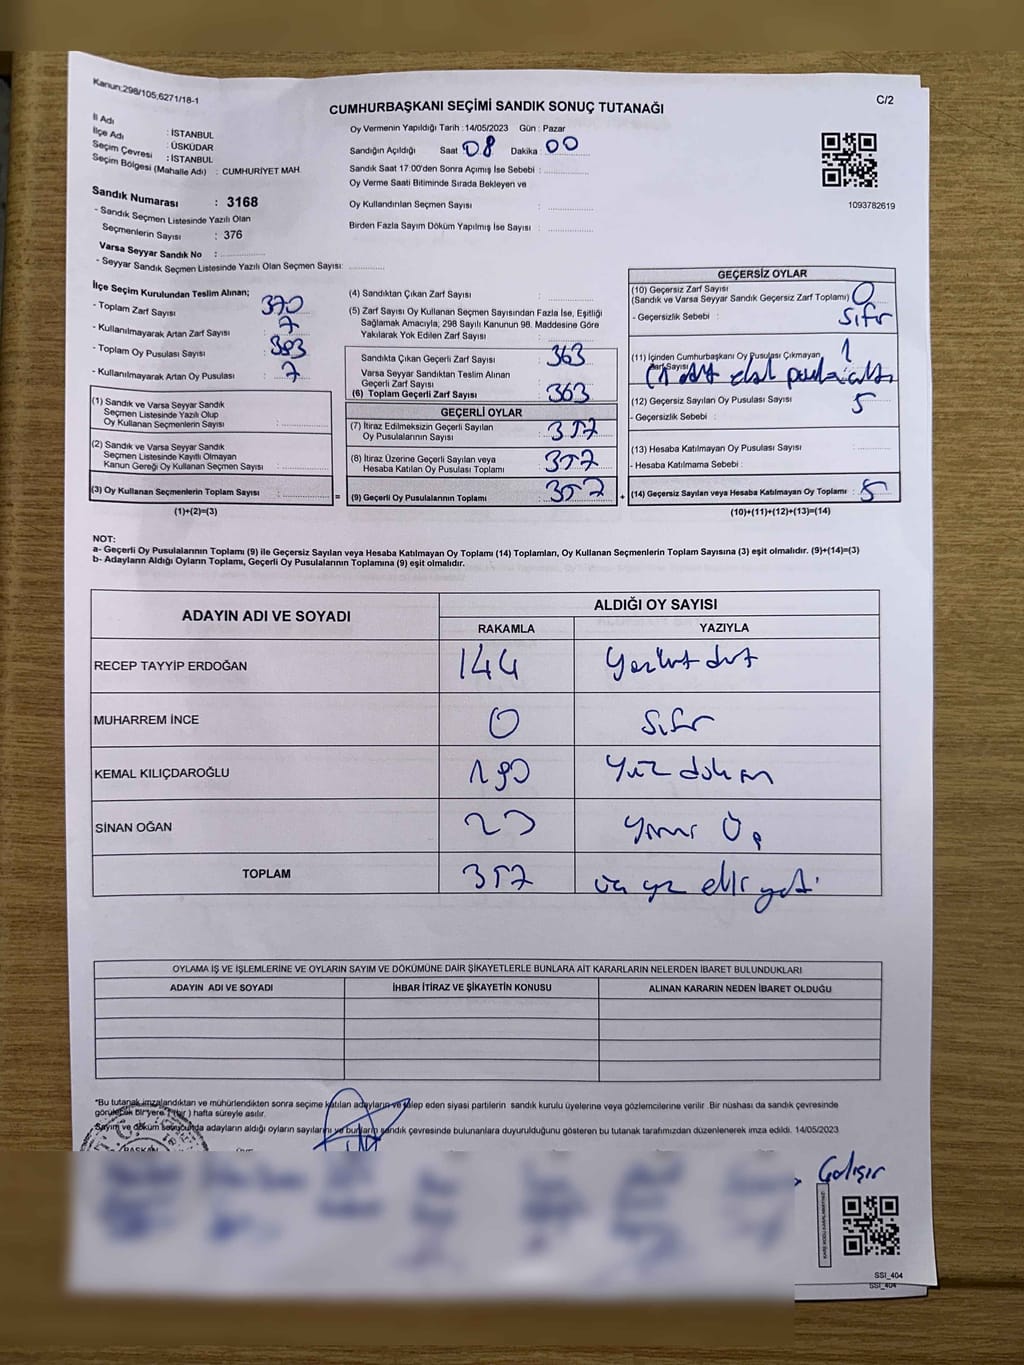 Kanun;298/105;6271/18-1
C/2
CUMHURBAŞKANI SEÇİMİ SANDIK SONUÇ TUTANAĞI
İl Adı : İSTANBUL
İlçe Adı : ÜSKÜDAR
Seçim Çevresi : İSTANBUL
Seçim Bölgesi (Mahalle Adı) : CUMHURİYET MAH.
Sandık Numarası : 3168
- Sandık Seçmen Listesinde Yazılı Olan
Seçmenlerin Sayısı : 376
Varsa Seyyar Sandık No :
- Seyyar Sandık Seçmen Listesinde Yazılı Olan Seçmen Sayısı:
Oy Vermenin Yapıldığı Tarih : 14/05/2023 Gün : Pazar
Sandığın Açıldığı Saat 08 Dakika : 00
Sandık Saat 17:00'den Sonra Açımış İse Sebebi :
Oy Verme Saati Bitiminde Sırada Bekleyen ve
Oy Kullandırılan Seçmen Sayısı :
Birden Fazla Sayım Döküm Yapılmış İse Sayısı :
1093782619
İlçe Seçim Kurulundan Teslim Alınan;
- Toplam Zarf Sayısı 370
- Kullanılmayarak Artan Zarf Sayısı 7
- Toplam Oy Pusulası Sayısı 383
- Kullanılmayarak Artan Oy Pusulası 7
(1) Sandık ve Varsa Seyyar Sandık
Seçmen Listesinde Yazılı Olup
Oy Kullanan Seçmenlerin Sayısı :
(2) Sandık ve Varsa Seyyar Sandık
Seçmen Listesinde Kayıtlı Olmayan
Kanun Gereği Oy Kullanan Seçmen Sayısı :
(3) Oy Kullanan Seçmenlerin Toplam Sayısı :
(1)+(2)=(3)
(4) Sandıktan Çıkan Zarf Sayısı :
(5) Zarf Sayısı Oy Kullanan Seçmen Sayısından Fazla İse, Eşitliği
Sağlamak Amacıyla; 298 Sayılı Kanunun 98. Maddesine Göre
Yakılarak Yok Edilen Zarf Sayısı :
Sandıkta Çıkan Geçerli Zarf Sayısı 363
Varsa Seyyar Sandıktan Teslim Alınan
Geçerli Zarf Sayısı
(6) Toplam Geçerli Zarf Sayısı : 363
GEÇERLİ OYLAR
(7) İtiraz Edilmeksizin Geçerli Sayılan
Oy Pusulalarının Sayısı : 357
(8) İtiraz Üzerine Geçerli Sayılan veya
Hesaba Katılan Oy Pusulası Toplamı : 357
= (9) Geçerli Oy Pusulalarının Toplamı : 357
GEÇERSİZ OYLAR
(10) Geçersiz Zarf Sayısı
(Sandık ve Varsa Seyyar Sandık Geçersiz Zarf Toplamı) 0
- Geçersizlik Sebebi : Sıfır
(11) İçinden Cumhurbaşkanı Oy Pusulası Çıkmayan 1
Zarf Sayısı
(12) Geçersiz Sayılan Oy Pusulası Sayısı 5
- Geçersizlik Sebebi :
(13) Hesaba Katılmayan Oy Pusulası Sayısı
- Hesaba Katılmama Sebebi :
+ (14) Geçersiz Sayılan veya Hesaba Katılmayan Oy Toplamı : 5
(10)+(11)+(12)+(13)=(14)
NOT:
a- Geçerli Oy Pusulalarının Toplamı (9) ile Geçersiz Sayılan veya Hesaba Katılmayan Oy Toplamı (14) Toplamları, Oy Kullanan Seçmenlerin Toplam Sayısına (3) eşit olmalıdır. (9)+(14)=(3)
b- Adayların Aldığı Oyların Toplamı, Geçerli Oy Pusulalarının Toplamına (9) eşit olmalıdır.
ADAYIN ADI VE SOYADI ALDIĞI OY SAYISI
RAKAMLA YAZIYLA
RECEP TAYYİP ERDOĞAN 144
MUHARREM İNCE 0 Sıfır
KEMAL KILIÇDAROĞLU 190 Yüz doksan
SİNAN OĞAN 23 Yirmi Üç
TOPLAM 357 üç yüz elli yedi
OYLAMA İŞ VE İŞLEMLERİNE VE OYLARIN SAYIM VE DÖKÜMÜNE DAİR ŞİKAYETLERLE BUNLARA AİT KARARLARIN NELERDEN İBARET BULUNDUKLARI
ADAYIN ADI VE SOYADI İHBAR İTİRAZ VE ŞİKAYETİN KONUSU ALINAN KARARIN NEDEN İBARET OLDUĞU
*Bu tutanak imzalandıktan ve mühürlendikten sonra seçime katılan adayların ve talep eden siyasi partilerin sandık kurulu üyelerine veya gözlemcilerine verilir. Bir nüshası da sandık çevresinde
görülebilecek bir yere ( bir ) hafta süreyle asılır.
Sayım ve döküm sonucunda adayların aldığı oyların sayılarını ve bunların sandık çevresinde bulunanlara duyurulduğunu gösteren bu tutanak tarafımızdan düzenlenerek imza edildi. 14/05/2023
BAŞKAN
Çalışır
SSI_404
SSI_404